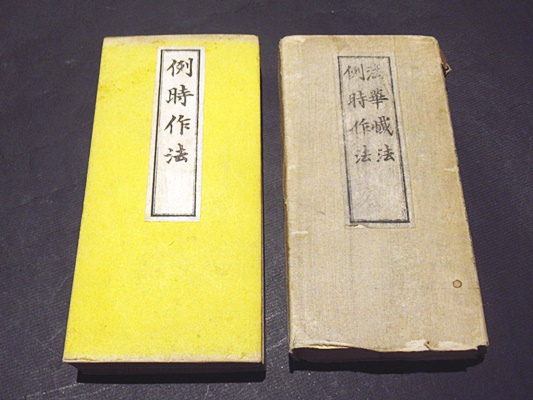 例時作法
法華懺法
例時作法